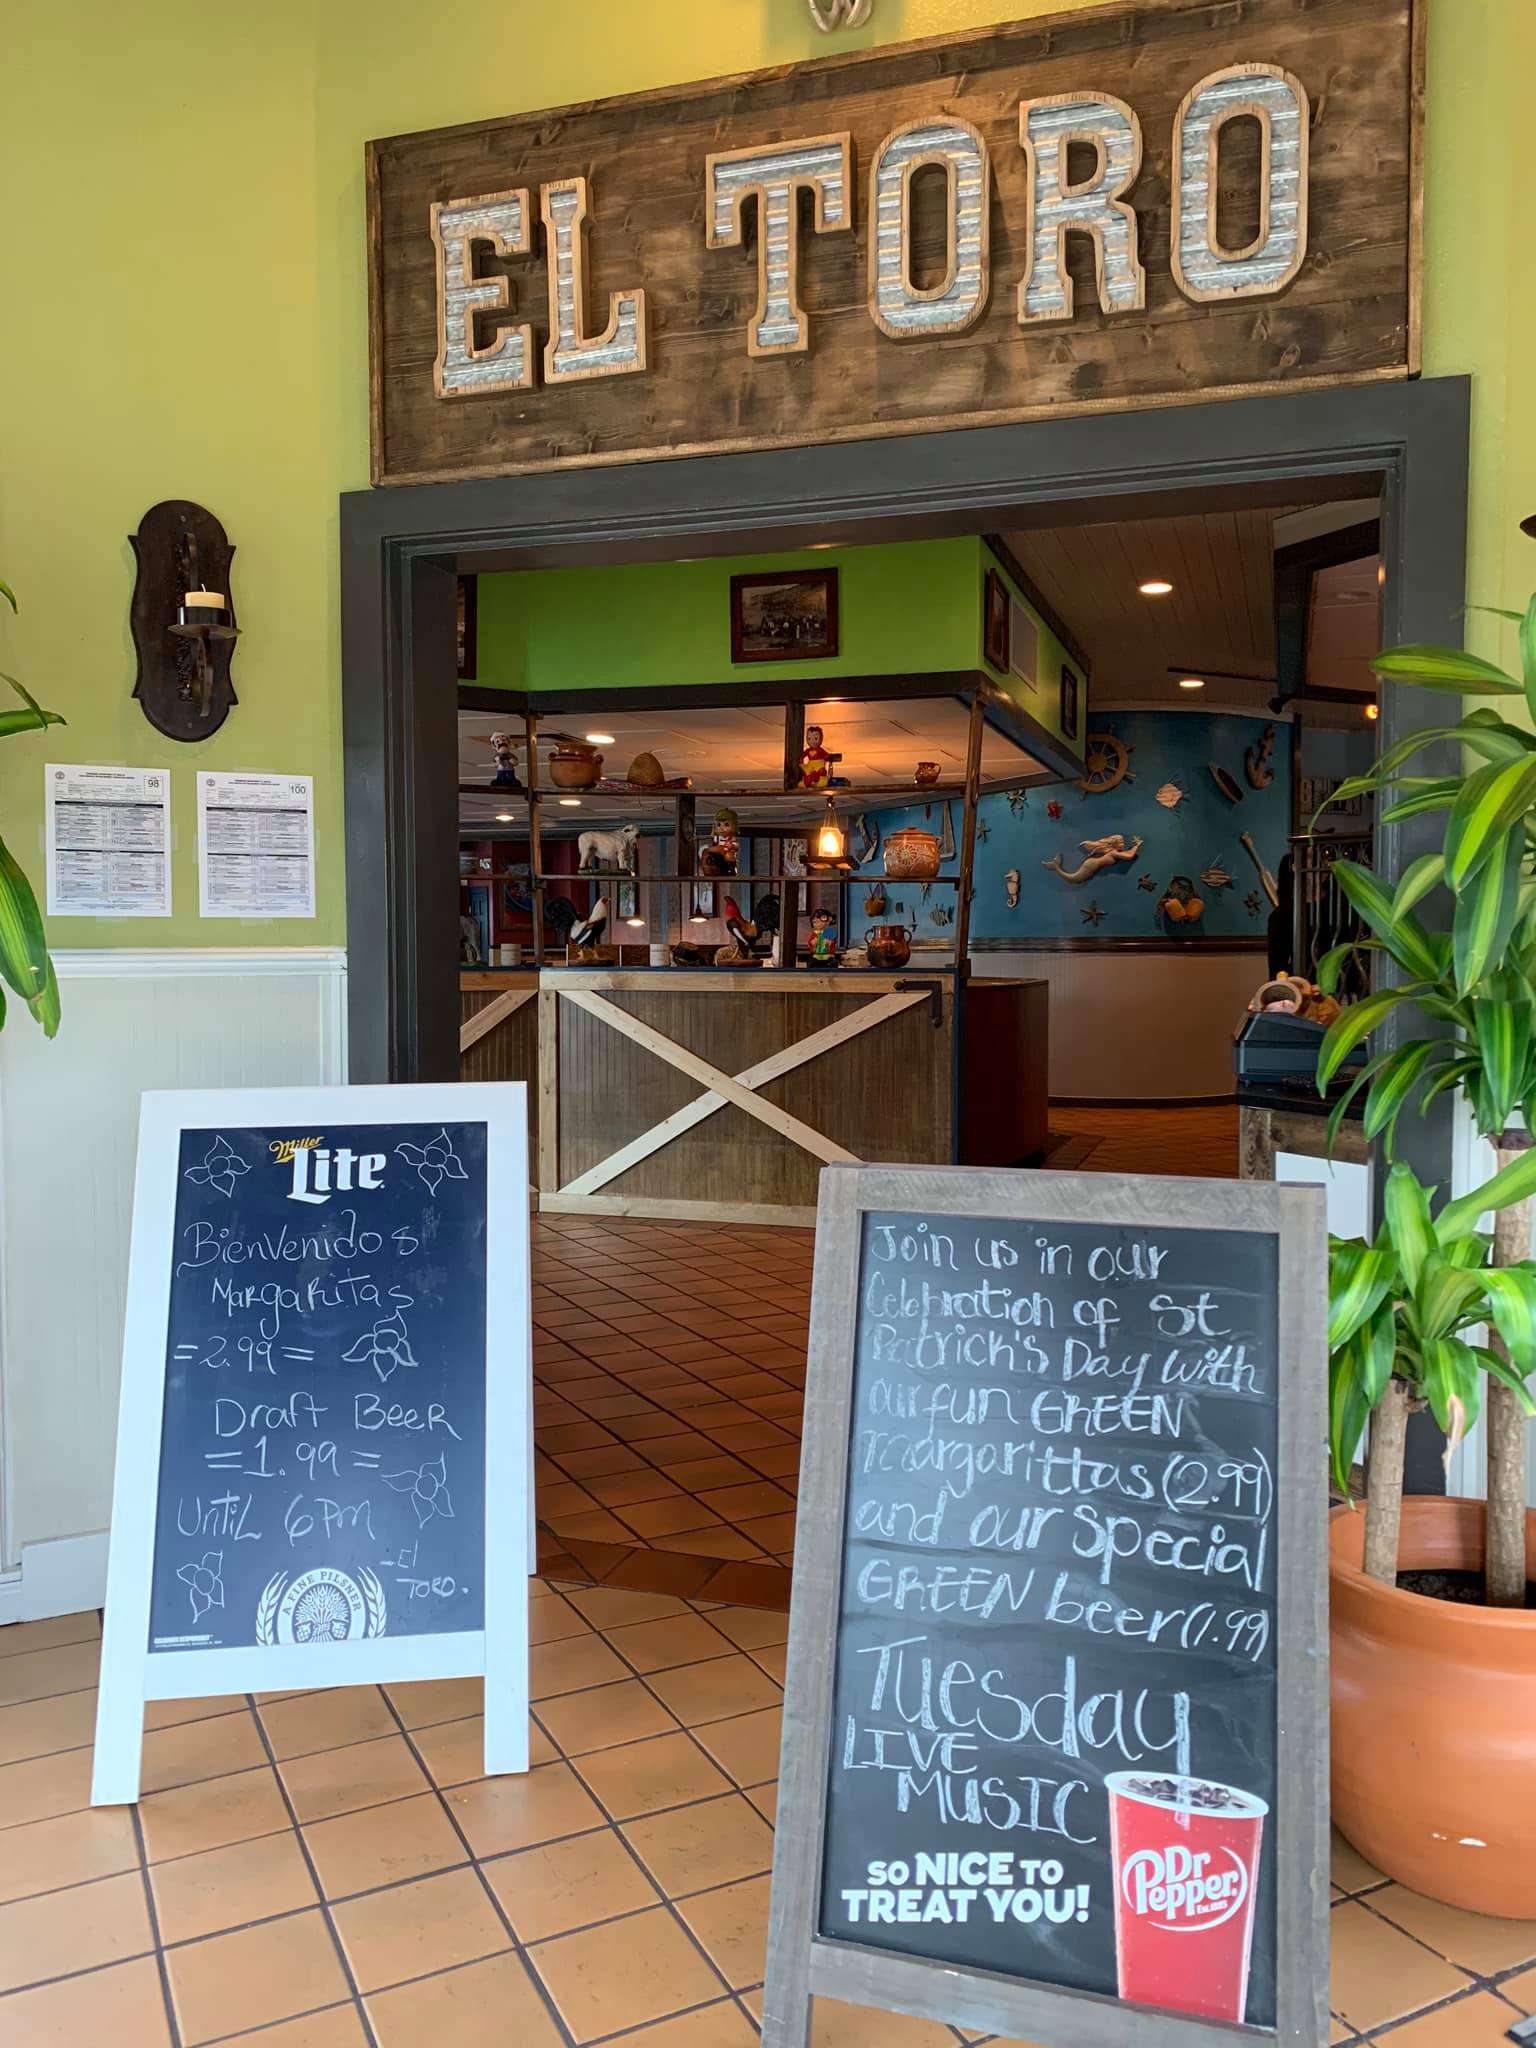 EL TORO
98
100
Miller
Lite
Bienvenidos
Margaritas
=2.99=
Draft Beer
=1.99=
Until 6pm
-El
Toro.
A FINE PILSNER
Join us in our
Celebration of St
Patrick's Day with
our fun GREEN
margarittas (2.99)
and our special
GREEN beer (1.99)
Tuesday
LIVE
MUSIC
SO NICE TO
TREAT YOU!
Dr
Pepper
Est. 1885